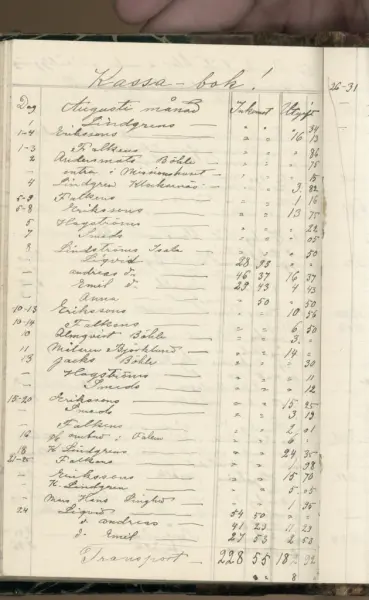 Kassa-bok!
26-31
Dag Augusti månad Inkomst Utgift
1 Lindgrens " " " 34
1-4 Erikssons " " 16 13
1-3 Falkens " " " 86
2 Andersmats Böhle " " " 75
— entré i Missionshuset " " " 15
4 Lindgren 3. 82
5-9 Falkens 1 16
5-8 Erikssons 13 75
5 Hagströms " 22
7 Smeds " 05
8 Lindströms " 50
— Liqvid 28 98
— andreas d:o 46 37 16 37
— Emil d:o 29 43 4 43
— Anna " 50 " 50
10-13 Erikssons 10 56
10-14 Falkens 6 50
10 Böhle 3. "
11 Björklund 14 "
13 Jacks Böhle " 30
— Hagströms " 11
— Smeds " 12
15-20 Erikssons 15
— Smeds 3 13
— Falkens 2 01
16 i Falun 6
18 K. Lindgrens 24 35
21-25 Falkens 1 98
— Erikssons 15 70
— K. Lindgren 5. 05
— Hans 1 35
24 Liqvid 54 50
d:o andreas 41 23 11 23
d:o Emil 27 53 2 53
Transport 228 55 182 32